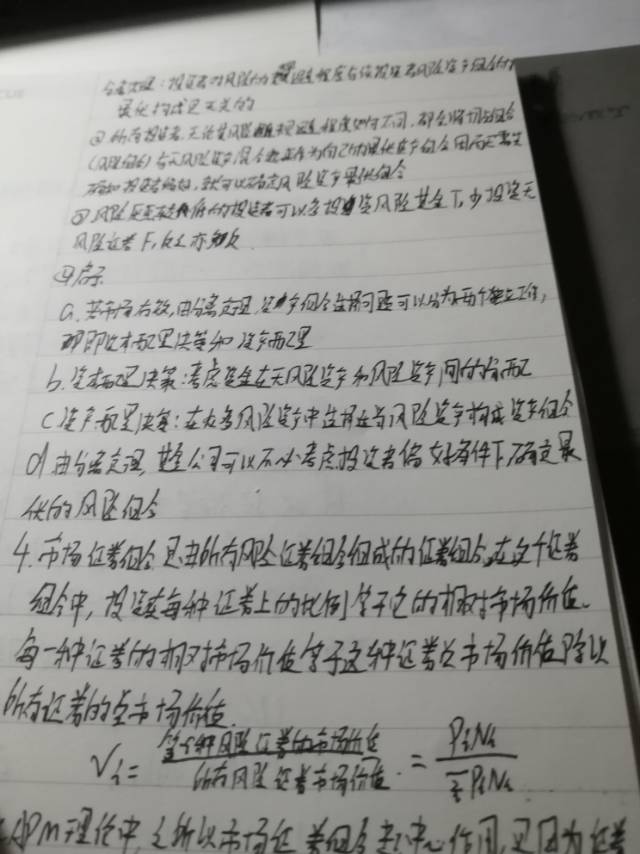 分离定理：投资者对风险的规避程度与该投资者风险资产组合的
最优构成是无关的
② 所有投资者，无论其风险规避程度如何不同，都会将切点组合
(风险组合)与无风险资产混合起来作为自己的最优资产组合因而无需先
确知投资者偏好，就可以确定风险资产最优组合
③ 风险厌恶较低的投资者可以多投资风险基金T，少投资无
风险证券F，反之亦如
④ 启示
a. 若市场有效，由分离定理，资产组合选择问题可以分为两个独立工作，
即资本配置决策和资产配置
b. 资本配置决策：考虑资金在无风险资产和风险资产间的分配
c 资产配置决策：在众多风险资产中选择适当风险资产构成资产组合
d 由分离定理，基金公司可以不必考虑投资者偏好条件下，确定最
优的风险组合
4. 市场证券组合是由所有风险证券组合组成的证券组合，在这个证券
组合中，投资在每种证券上的比例等于它的相对市场价值。
每一种证券的相对市场价值等于这种证券总市场价值除以
所有证券的总市场价值.
Vi= 第i种风险证券的市场价值 / 所有风险证券市场价值 = PiNi / ΣPiNi
APM理论中，之所以市场证券组合起中心作用，是因为证券